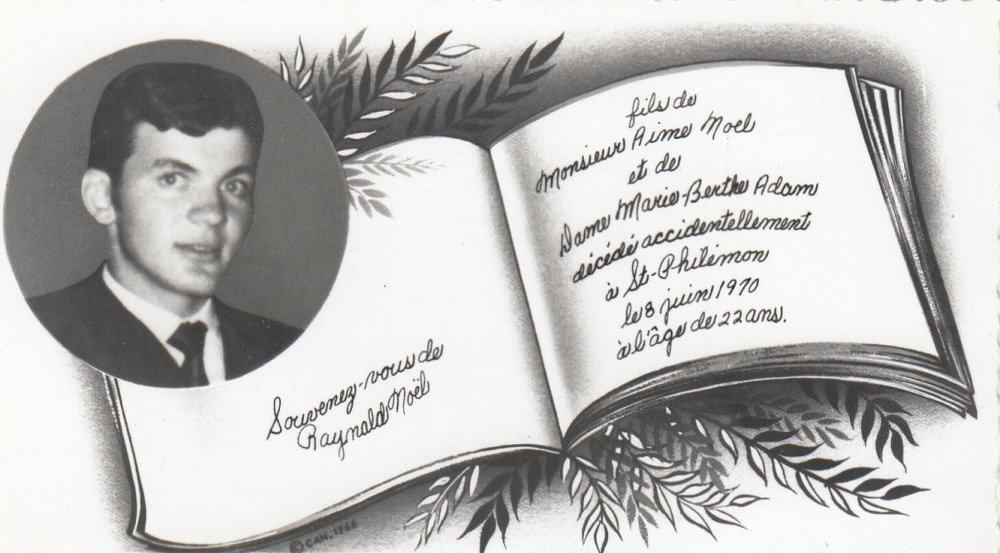 Souvenez-vous de
Raynald Noël
fils de
Monsieur Aime Noel
et de
Dame Marie-Berthe Adam
décédé accidentellement
à St-Philémon
le 8 juin 1970
à l'âge de 22 ans.
© CAN. 1966